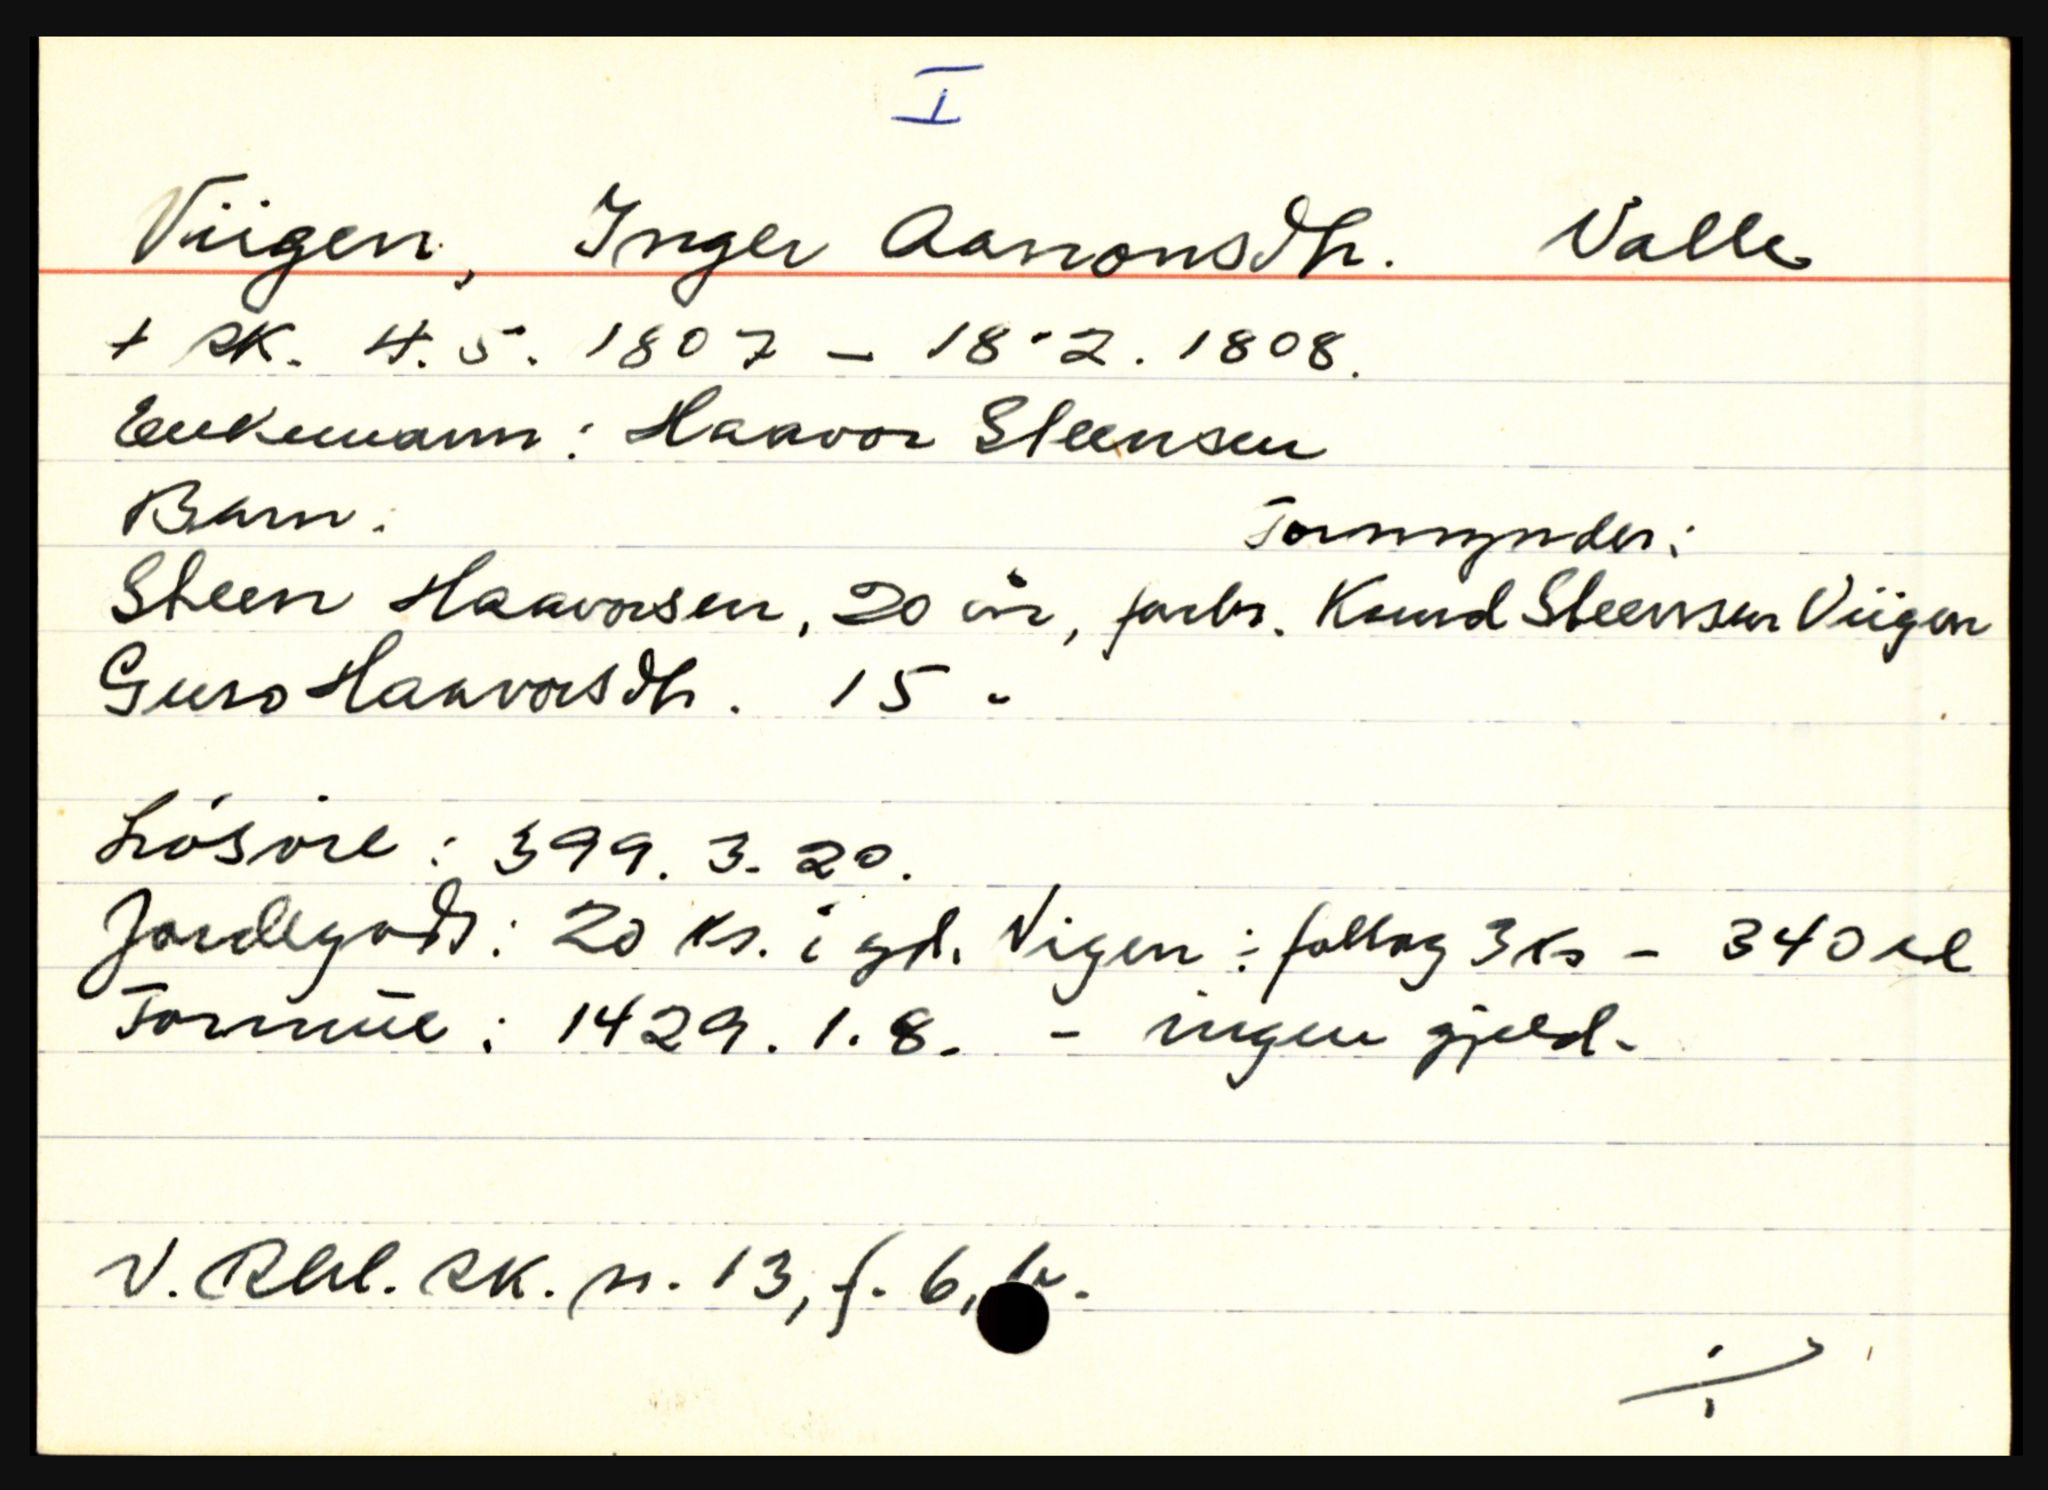 I
Viigen, Inger Aanonsdtr. Valle
+ SK. 4.5. 1807 - 18-2. 1808.
Enkemann: Haavor Steensen
Barn: Formynder:
Steen Haavorsen, 20 år, farbr. Knud Steensen Viigen
Guro Haavorsdtr. 15 "
Lösöre: 399. 3. 20.
Jordegods: 20 ks. i gd. Vigen : follog 3 ks - 340 rd
Formue: 1429. 1. 8. - ingen gjeld.
V. Rbl. SK. n. 13, f. 6, b.